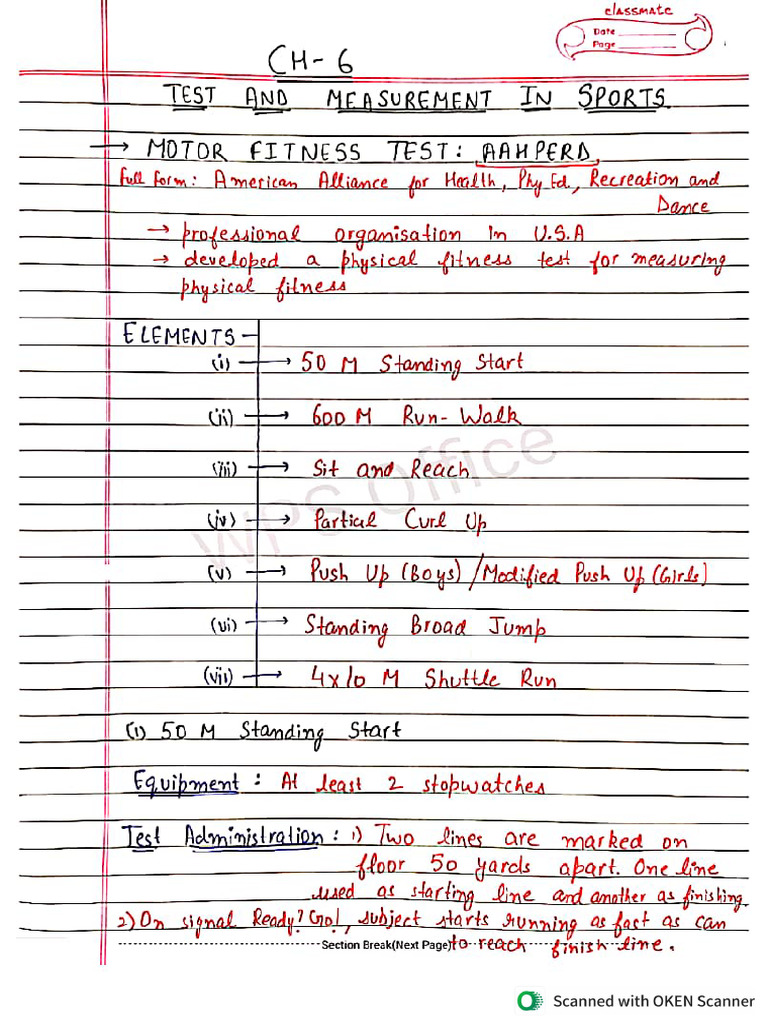 classmate
Date
Page
CH-6
TEST AND MEASUREMENT IN SPORTS
→ MOTOR FITNESS TEST: AAHPERD
Full Form: American Alliance for Health, Phy Ed., Recreation and
Dance
→ professional organisation in U.S.A
→ developed a physical fitness test for measuring
physical fitness
ELEMENTS-
(i) → 50 M Standing Start
(ii) → 600 M Run-Walk
(iii) → Sit and Reach
(iv) → Partial Curl Up
(v) → Push Up (Boys) / Modified Push Up (Girls)
(vi) → Standing Broad Jump
(vii) → 4x10 M Shuttle Run
WPS Office
(i) 50 M Standing Start
Equipment: At least 2 stopwatches
Test Administration: 1) Two lines are marked on
floor 50 yards apart. One line
used as starting line and another as finishing.
2) On signal Ready? Go!, subject starts running as fast as can
Section Break(Next Page) to reach finish line.
Scanned with OKEN Scanner